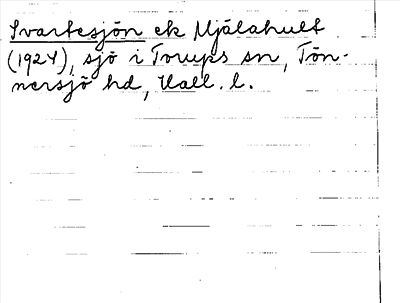 Svartesjön ek Mjälahult
(1924), sjö i Torups sn, Tön-
nersjö hd, Hall. l.